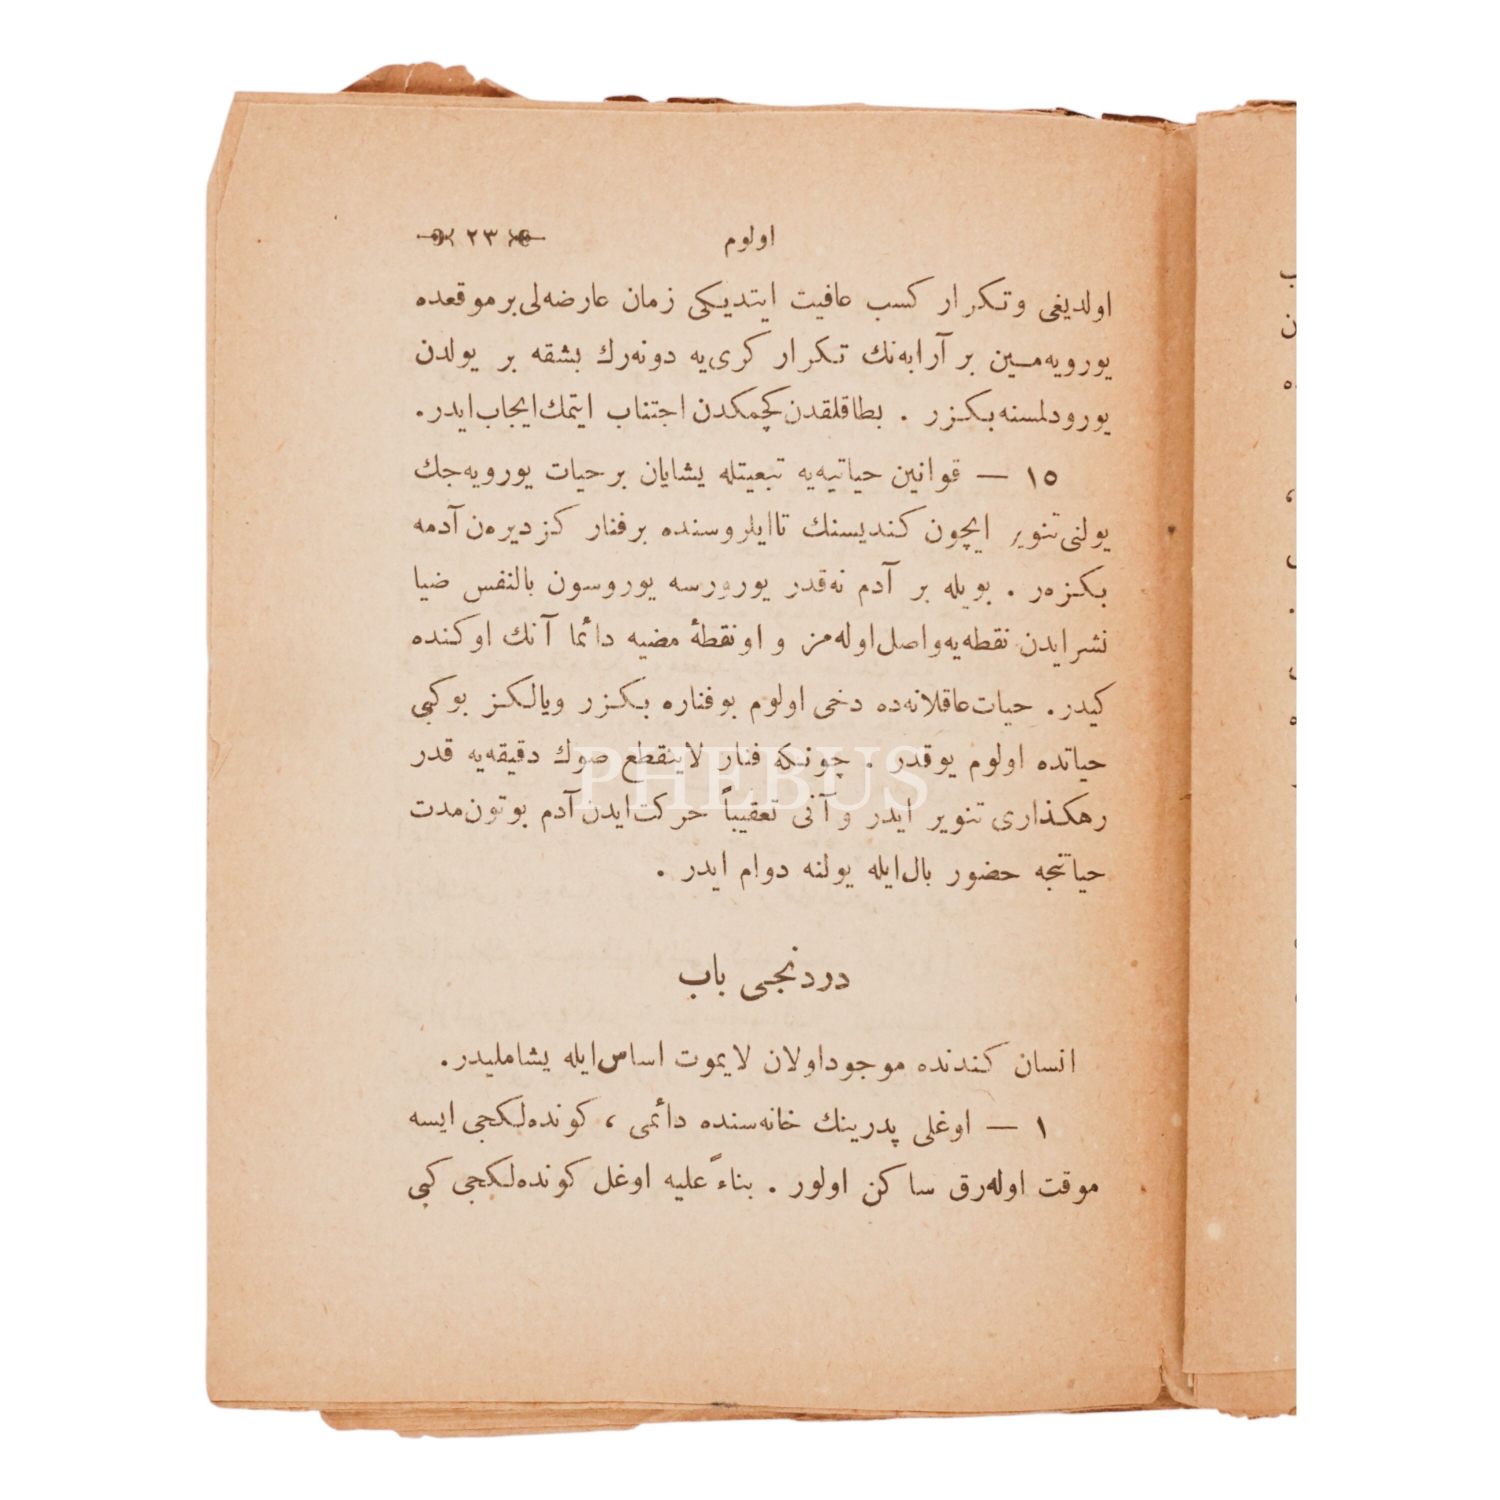 اولوم ٢٣
اولدیغی وتكرار كسب عافیت ایتدیكی زمان عارضه‌لی برموقعده
یورویه‌مـین بر آرابه‌نك تكرار كری‌یه دونه‌رك بشقه بر یولدن
یورودلمسنه‌بكزر . بطاقلقدن‌كچمكدن اجتناب ایتمك‌ایجاب‌ایدر.
١٥ — قوانین حیاتیه‌یه تبعیتله یشایان برحیات یورویه‌جك
یولنی‌تنویر ایچون كندیسنك تاایلروسنده برفنار كزدیره‌ن آدمه
بكزه‌ر . بویله بر آدم نه‌قدر یورورسه یوروسون بالنفس ضیا
نشرایدن نقطه‌یه‌واصل‌اوله‌مز و اونقطهٔ مضیه دائما آنك اوكنده
كیدر. حیات‌عاقلانه‌ده دخی اولوم بوفناره بكزر ویالكز بوكبی
حیاتده اولوم یوقدر . چونكه فنار لاینقطع صوك دقیقه‌یه قدر
رهكذاری تنویر ایدر و آنی تعقیباً حركت‌ایدن‌آدم بوتون‌مدت
حیاتنجه حضور بال‌ایله یولنه دوام ایدر .
دردنجی باب
انسان كندنده موجوداولان لایموت اساس‌ایله یشاملیدر.
١ — اوغلی پدرینك خانه‌سنده دائمی ، كونده‌لكجی ایسه
موقت اوله‌رق ساكن اولور . بناءً علیه اوغل كونده‌لكجی كبی
PHEBUS